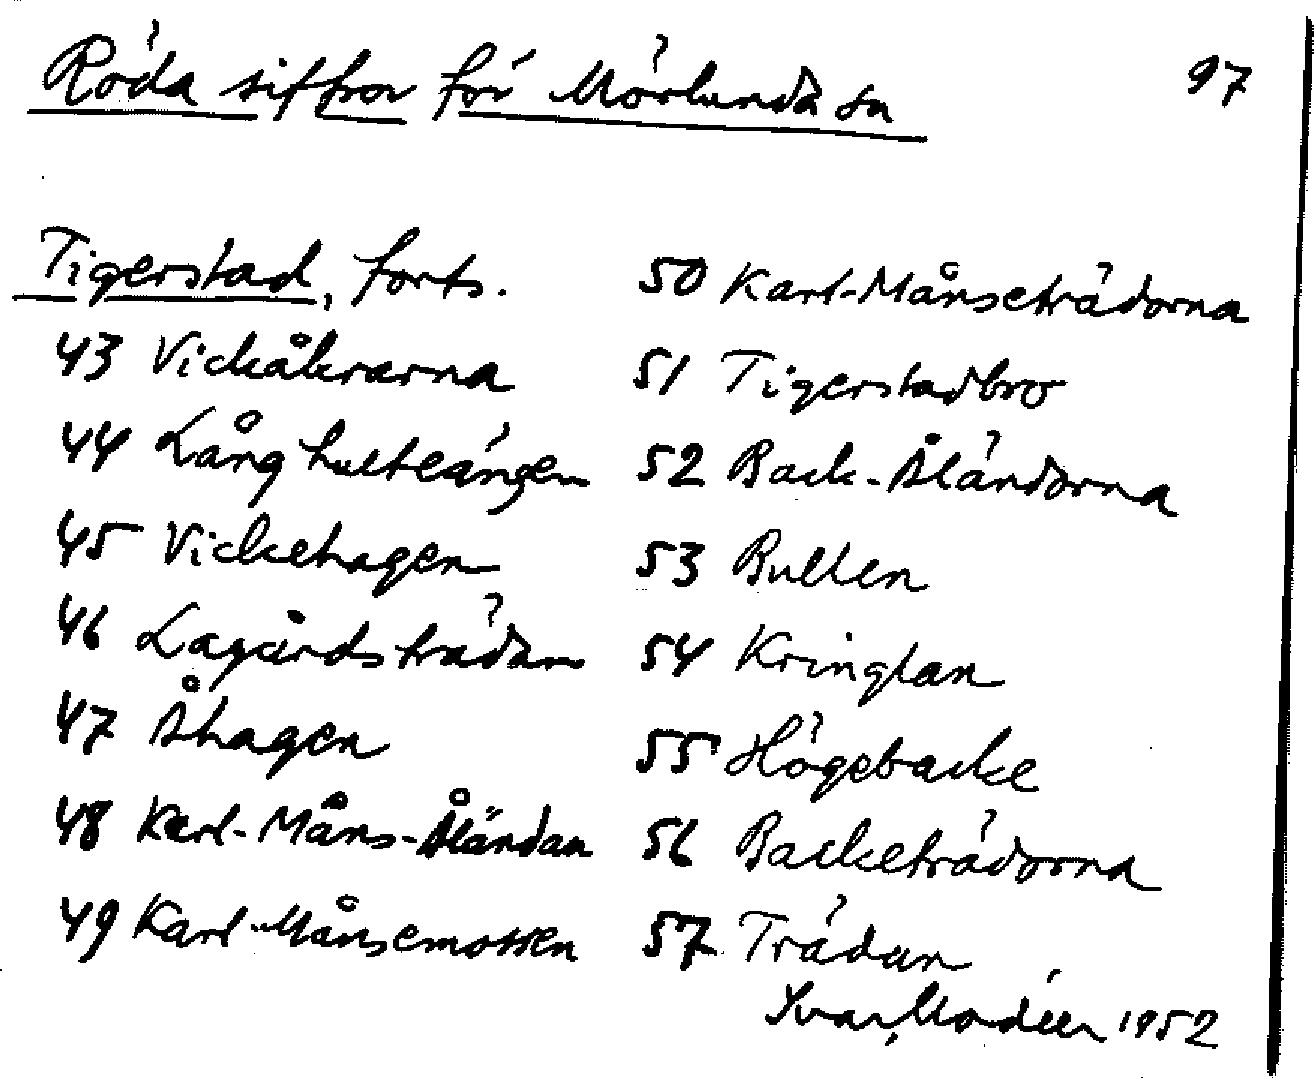 Röda siffror för Mörlunda sn
97
Tigerstad, forts.
43 Vickåkrarna
44 Långhulteängen
45 Vickehagen
46 Lagårdsträdan
47 Åhagen
48 Karl-Måns-Åländan
49 Karl-Månsemossen
50 Karl-Månseträdorna
51 Tigerstadbro
52 Back-Åländorna
53 Bullen
54 Kringlan
55 Högebacke
56 Backeträdorna
57 Trädan
Ivar Modéer 1952